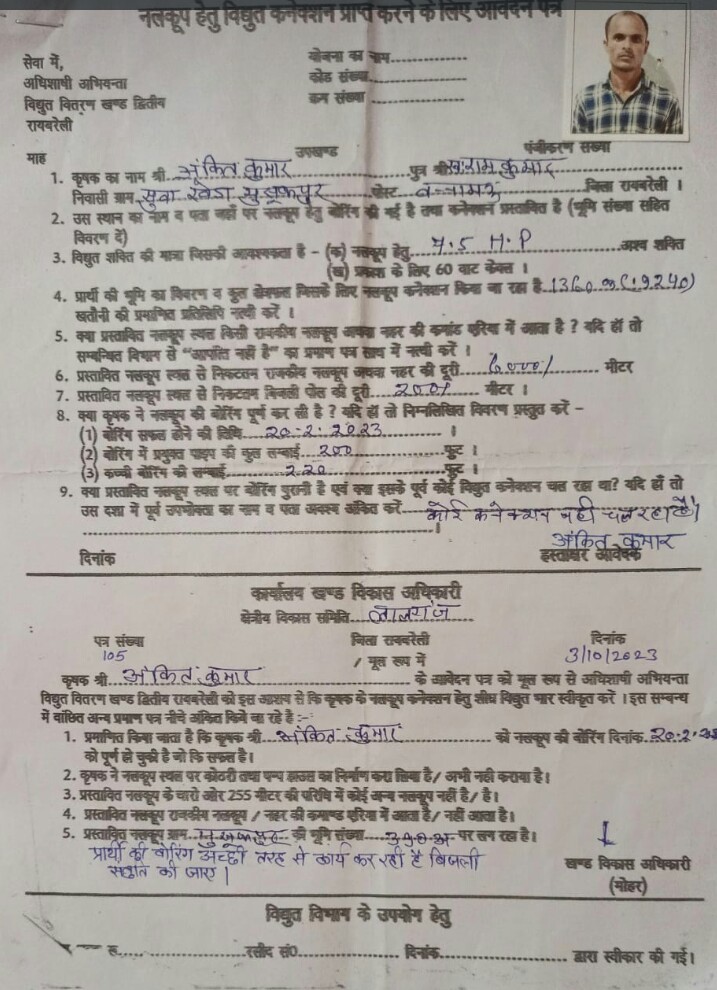 नलकूप हेतु विद्युत कनेक्शन प्राप्त करने के लिए आवेदन पत्र
सेवा में,
योजना का नाम....................
अधिशाषी अभियन्ता
कोड संख्या....................
विद्युत वितरण खण्ड द्वितीय
क्रम संख्या....................
रायबरेली
उपखण्ड पंजीकरण संख्या
माह
1. कृषक का नाम श्री अंकित कुमार पुत्र श्री कुमार
निवासी ग्राम पोस्ट जिला रायबरेली ।
2. उस स्थान का नाम व पता जहाँ पर नलकूप हेतु बोरिंग की गई है तथा कनेक्शन प्रस्तावित है (भूमि संख्या सहित
विवरण दें)
3. विद्युत शक्ति की मात्रा जिसकी आवश्यकता है – (क) नलकूप हेतु 7.5 H.P अश्व शक्ति
(ख) प्रकाश के लिए 60 वाट केवल ।
4. प्रार्थी की भूमि का विवरण व कुल क्षेत्रफल जिसके लिए नलकूप कनेक्शन किया जा रहा है
खतौनी की प्रमाणित प्रतिलिपि नत्थी करें ।
5. क्या प्रस्तावित नलकूप स्थल किसी राजकीय नलकूप अथवा नहर की कमांड एरिया में आता है ? यदि हाँ तो
सम्बन्धित विभाग से "आपत्ति नहीं है" का प्रमाण पत्र साथ में नत्थी करें ।
6. प्रस्तावित नलकूप स्थल से निकटतम राजकीय नलकूप अथवा नहर की दूरी मीटर
7. प्रस्तावित नलकूप स्थल से निकटतम बिजली पोल की दूरी मीटर ।
8. क्या कृषक ने नलकूप की बोरिंग पूर्ण कर ली है ? यदि हाँ तो निम्नलिखित विवरण प्रस्तुत करें –
(1) बोरिंग सफल होने की तिथि 20.2.2023 ।
(2) बोरिंग में प्रयुक्त पाइप की कुल लम्बाई 200 फुट ।
(3) कच्ची बोरिंग की लम्बाई 220 फुट ।
9. क्या प्रस्तावित नलकूप स्थल पर बोरिंग पुरानी है एवं क्या इसके पूर्व कोई विद्युत कनेक्शन चल रहा था? यदि हाँ तो
उस दशा में पूर्व उपभोक्ता का नाम व पता अवश्य अंकित करें कोई कनेक्शन नही चल रहा है।
अंकित कुमार
दिनांक हस्ताक्षर आवेदक
कार्यालय खण्ड विकास अधिकारी
क्षेत्रीय विकास समिति लालगंज
पत्र संख्या जिला रायबरेली दिनांक
105 / मूल रूप में 3/10/2023
कृषक श्री अंकित कुमार के आवेदन पत्र को मूल रूप से अधिशाषी अभियन्ता
विद्युत वितरण खण्ड द्वितीय रायबरेली को इस आशय से कि कृषक के नलकूप कनेक्शन हेतु शीघ्र विद्युत भार स्वीकृत करें । इस सम्बन्ध
में वांछित अन्य प्रमाण पत्र नीचे अंकित किये जा रहे है :–
1. प्रमाणित किया जाता है कि कृषक श्री अंकित कुमार को नलकूप की बोरिंग दिनांक
को पूर्ण हो चुकी है जो कि सफल है।
2. कृषक ने नलकूप स्थल पर कोठरी तथा पम्प हाउस का निर्माण करा लिया है/ अभी नही कराया है।
3. प्रस्तावित नलकूप के चारो ओर 255 मीटर की परिधि में कोई अन्य नलकूप नहीं है/ है।
4. प्रस्तावित नलकूप राजकीय नलकूप / नहर की कमाण्ड एरिया में आता है/ नहीं आता है।
5. प्रस्तावित नलकूप ग्राम की भूमि संख्या पर लग रहा है।
प्रार्थी की बोरिंग अच्छी तरह से कार्य कर रही है बिजली
की जाए।
खण्ड विकास अधिकारी
(मोहर)
विद्युत विभाग के उपयोग हेतु
रु. रसीद सं0 दिनांक द्वारा स्वीकार की गई।